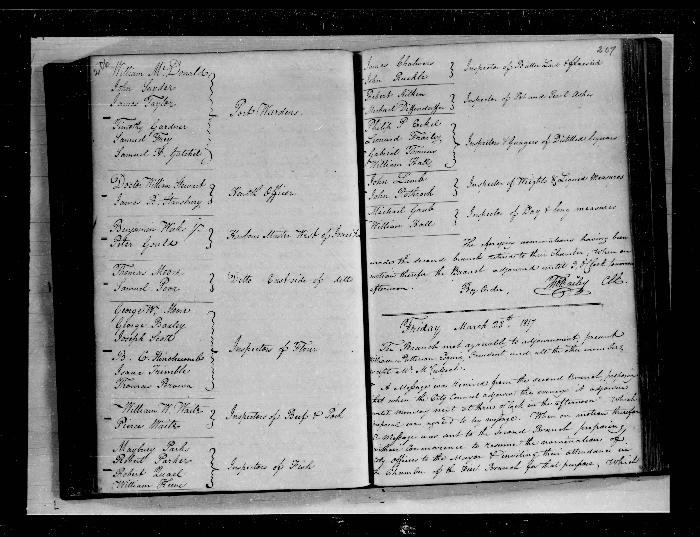 William Mc Donald
John Snyder
James Taylor
Port Wardens
Timothy Gardner
Samuel Frey
Samuel H. Gatchel
Doctor William Stewart
James B. Stansbury
Health Officer
Benjamin Wa Jr
Peter Gould
Harbour Master West of
Thomas Moore
Samuel Poor
Ditto East side of ditto
George W. Moore
George Bailey
Joseph Scott
B. C. Hinchcombs
Isaac Trimble
Thomas Brown
Inspectors of Flour
William W. Waite
Pierce Waite
Inspectors of Beef & Pork
Maybury Parks
Parker
Robert Quail
William Keene
Inspectors of Fish
207
James Chalmers
John Ruckle
Inspector of Butter Lard & Flaxseed
Robert Aitken
Michael Diffenderffer
Inspector of Pot and Pearl Ashes
Philip P. Eckel
Leonard Frailey
Gabriel
William Hall
Inspectors & Guagers of Distilled Liquors
John Lamb
John Rothrock
Inspector of Weights & Liquid Measures
Michael Gaub
William Ball
Inspector of Dry & long measures
The foregoing nominations having been
made the second branch retired to their Chamber, When on
motion therefor the Branch adjourned until 3 O'Clock tomorrow
afternoon.
By Order, Bailey Clk
Friday March 28th 1817
The Branch met agreeably to adjournment, present
William Patterson Esquire, President and all the other members
except Mr. McCulloch.
A Message was received from the second Branch, proposing
that when the City Council adjourns this evening it adjourns
until monday next at three o'clock in the afternoon. Which
proposal was agreed to by message. When on motion therefor
a Message was sent to the second Branch proposing
to resume the nominations of
City officers to the Mayor & inviting their attendance in
the Chamber of the first Branch for that purpose, Which